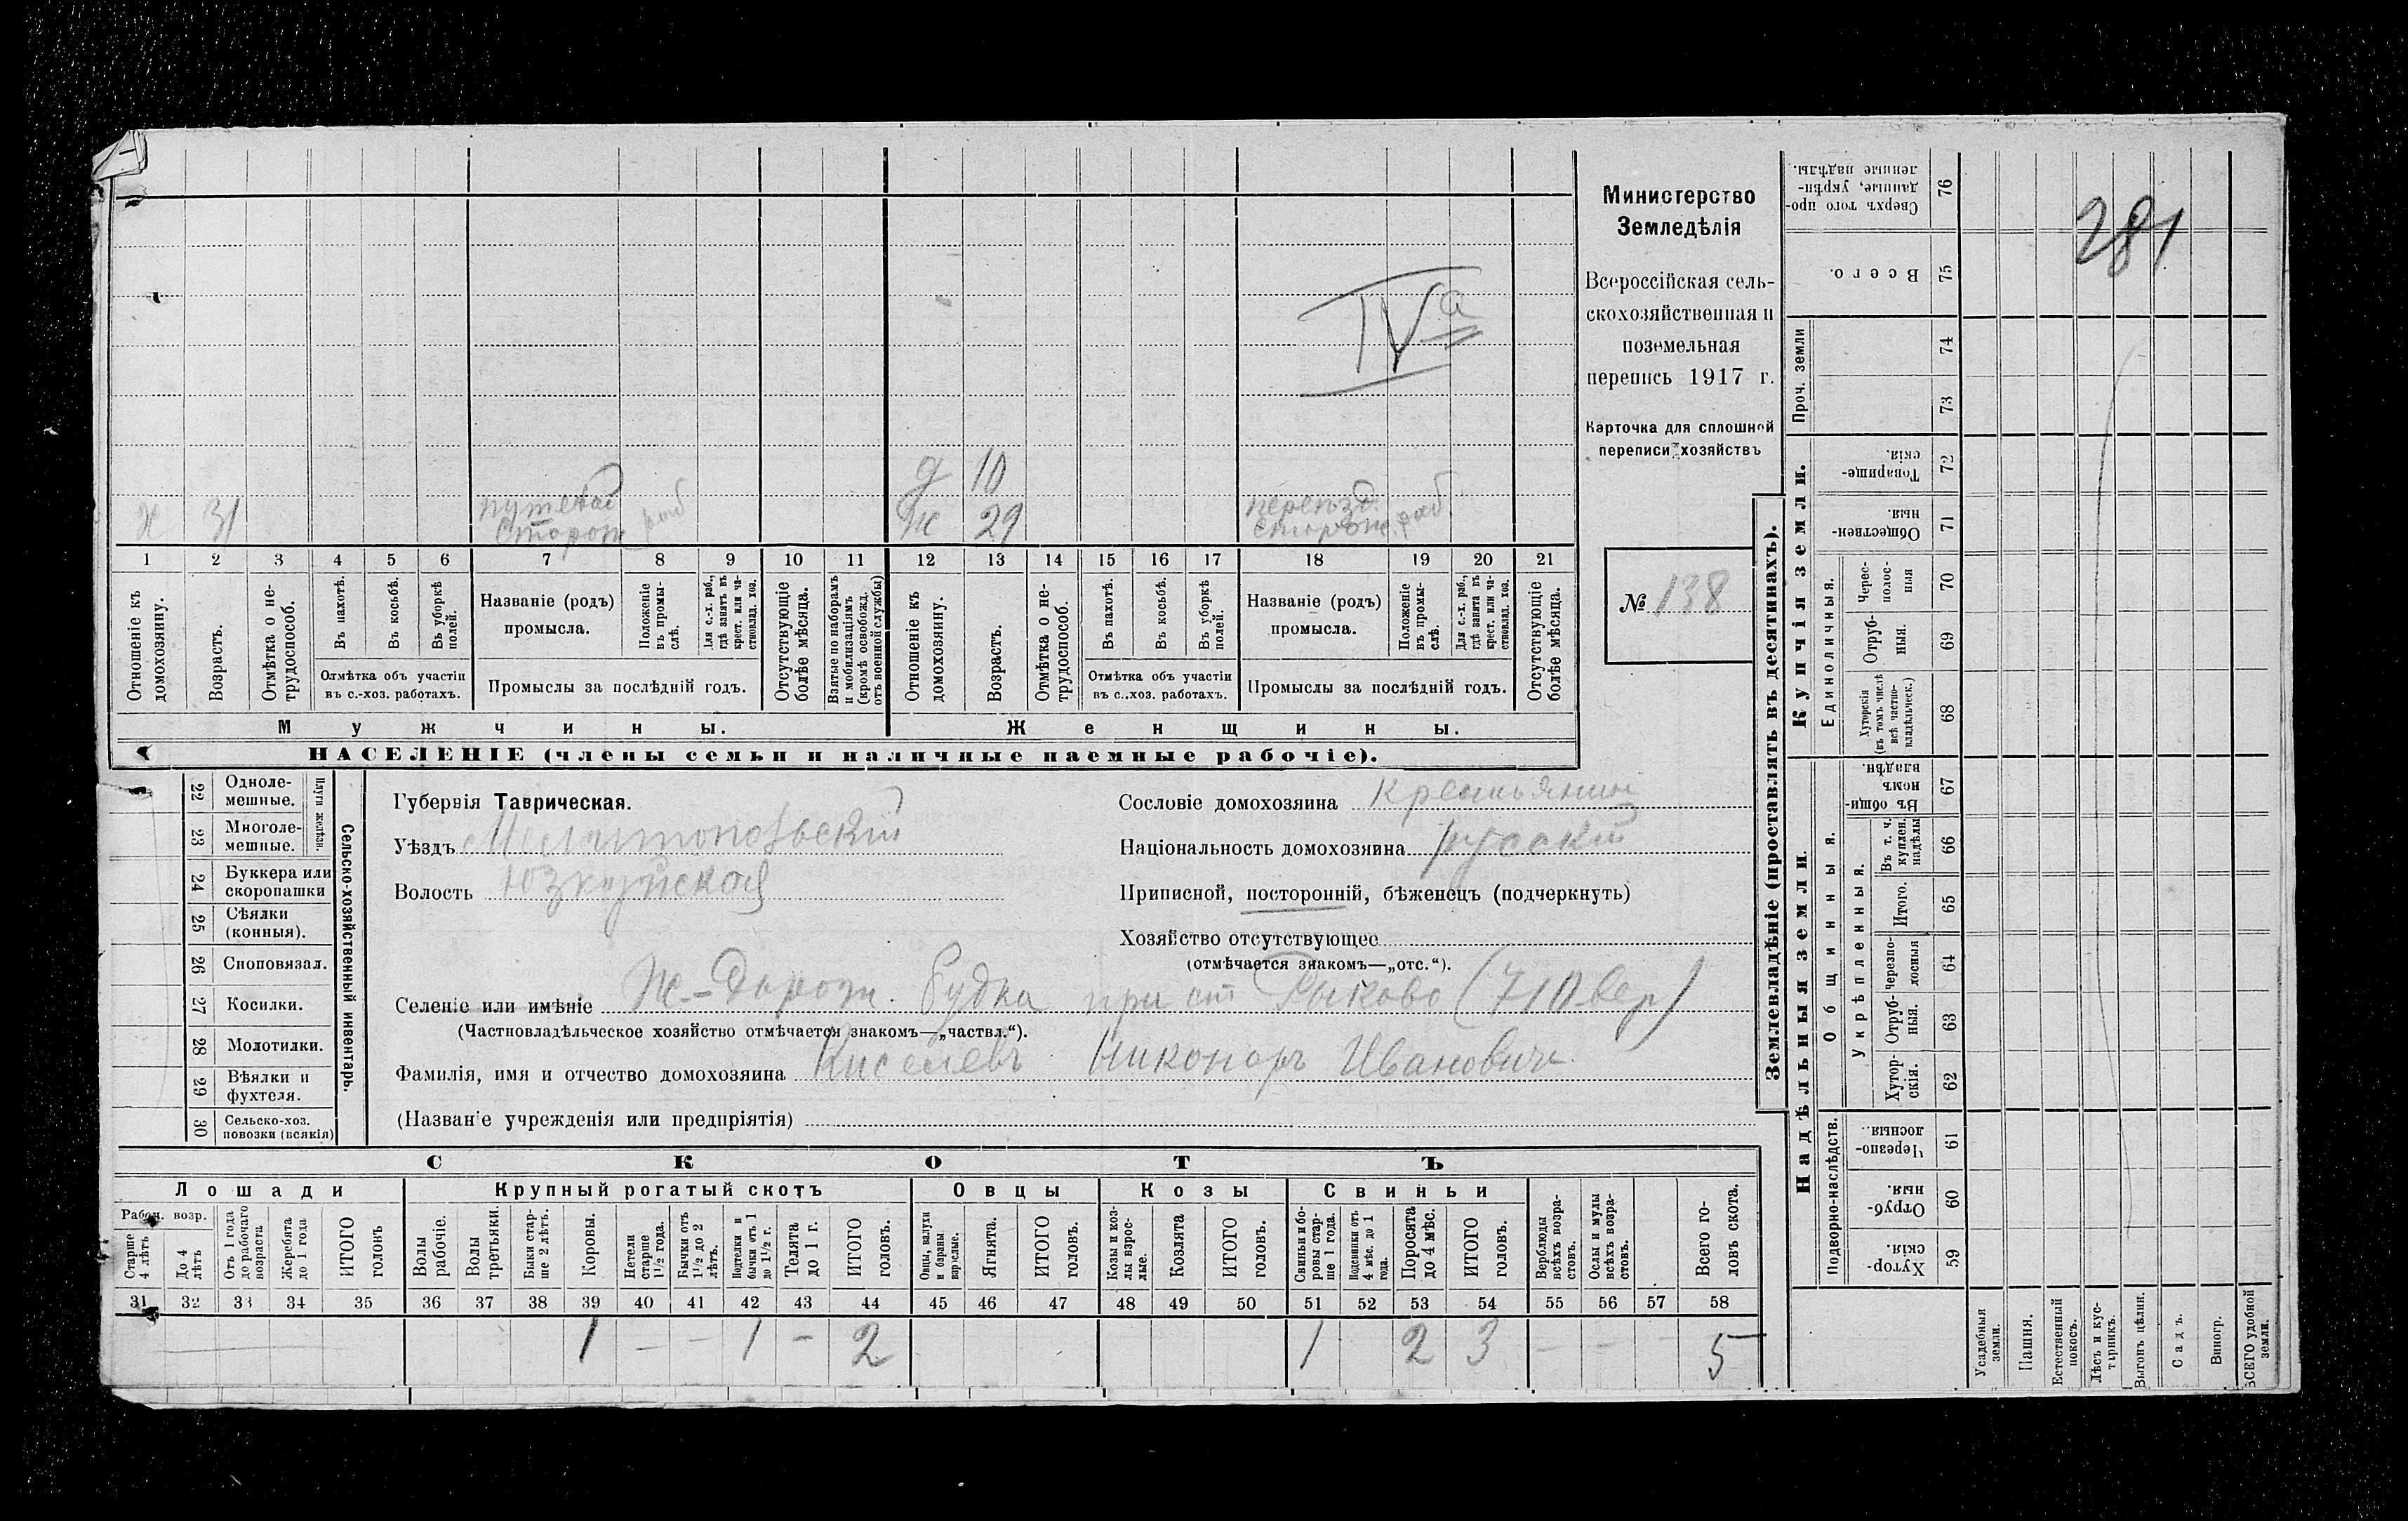 281
IVа
Министерство
Земледѣлія
Всероссійская сель-
скохозяйственная и
поземельная
перепись 1917 г.
Карточка для сплошной
переписи хозяйствъ
№ 138
д 10
х 31 путевой сторож раб
ж 29 переезд. сторож. раб.
1 2 3 4 5 6 7 8 9 10 11 12 13 14 15 16 17 18 19 20 21
Отношеніе къ домохозяину.
Возрастъ.
Отмѣтка о не-трудоспособ.
Въ пахотѣ.
Въ косьбѣ.
Въ уборкѣ полей.
Отмѣтка объ участіи
въ с.-хоз. работахъ.
Названіе (родъ)
промысла.
Положеніе въ промы-слѣ.
Для с.-х. раб., гдѣ занятъ въ крест. или ча-стновлад. хоз.
Промыслы за послѣдній годъ.
Отсутствующіе болѣе мѣсяца.
Взятые по наборамъ и мобилизаціямъ (кромѣ освобожд. отъ военной службы)
Отношеніе къ домохозяину.
Возрастъ.
Отмѣтка о не-трудоспособ.
Въ пахотѣ.
Въ косьбѣ.
Въ уборкѣ полей.
Отмѣтка объ участіи
въ с..хоз. работахъ.
Названіе (родъ)
промысла.
Положеніе въ промы-слѣ.
Для с.-х. раб., гдѣ занята въ крест. или ча-стновлад. хоз.
Промыслы за послѣдній годъ.
Отсутствующіе болѣе мѣсяца.
Мужчины.
Женщины.
НАСЕЛЕНІЕ (члены семьи и наличные наемные рабочіе).
22 Одноле-мешные.
23 Многоле-мешные.
Плуги желѣзн.
24 Буккера или скоропашки
25 Сѣялки (конныя).
26 Сноповязал.
27 Косилки.
28 Молотилки.
29 Вѣялки и фухтеля.
30 Сельско-хоз. повозки (всякія)
Сельско-хозяйственный инвентарь.
Губернія Таврическая.
Уѣздъ Мелитопольскій
Волость Юзкуйская
Сословіе домохозяина крестьянин
Національность домохозяина русскій
Приписной, посторонній, бѣженецъ (подчеркнуть)
Хозяйство отсутствующее
(отмѣчается знакомъ—„отс.“).
Селеніе или имѣніе Ж.-Дорож. будка при ст Рыково (710 вер)
(Частновладѣльческое хозяйство отмѣчается знакомъ—„частвл.“).
Фамилія, имя и отчество домохозяина Киселевъ Никоноръ Ивановичъ
(Названіе учрежденія или предпріятія)
СКОТЪ
Лошади
Крупный рогатый скотъ
Овцы
Козы
Свиньи
Рабоч. возр.
Старше 4 лѣтъ
До 4 лѣтъ
Отъ 1 года до рабочаго возраста
Жеребята до 1 года
ИТОГО головъ
Волы рабочіе.
Волы третьяки.
Быки стар-ше 2 лѣтъ.
Коровы.
Нетели старше 1½ года.
Бычки отъ 1½ до 2 лѣтъ.
Подтелки и бычки отъ 1 до 1½ г.
Телята до 1 г.
ИТОГО головъ.
Овцы, валухи и бараны взрослые.
Ягнята.
ИТОГО головъ.
Козы и коз-лы взрос-лые.
Козлята
ИТОГО головъ.
Свиньи и бо-ровы стар-ше 1 года.
Подсвинки отъ 4 мѣс. до 1 года.
Поросята до 4 мѣс.
ИТОГО головъ.
Верблюды всѣхъ возра-стовъ.
Ослы и мулы всѣхъ возра-стовъ.
Всего го-ловъ скота.
31 32 33 34 35 36 37 38 39 40 41 42 43 44 45 46 47 48 49 50 51 52 53 54 55 56 57 58
1 — — 1 — 2 1 2 3 — — — 5
Землевладѣніе (проставлять въ десятинахъ).
Сверхъ того про-данные, укрѣп-ленные надѣлы. 76
Всего. 75
Проч. земли
74
73
Купчія земли.
Товарище-скія. 72
Обществен-ныя. 71
Единоличныя.
Черес-полос-ныя 70
Отруб-ныя. 69
Хуторскія (въ томъ числѣ всѣ частно-владѣльческ.) 68
Надѣльныя земли.
Общинныя.
Въ общин-номъ владѣн. 67
Укрѣпленныя.
Въ т. ч. куплен. надѣлы 66
Итого. 65
Черезпо-лосныя 64
Отруб-ныя. 63
Хутор-скія. 62
Подворно-наслѣдств.
Черезпо-лосныя. 61
Отруб-ныя. 60
Хутор-скія. 59
Усадебныя земли.
Пашня.
Естественный покосъ.
Лѣсъ и кус-тарникъ.
Выгонъ цѣлин.
Садъ.
Виногр.
ВСЕГО удобной земли.